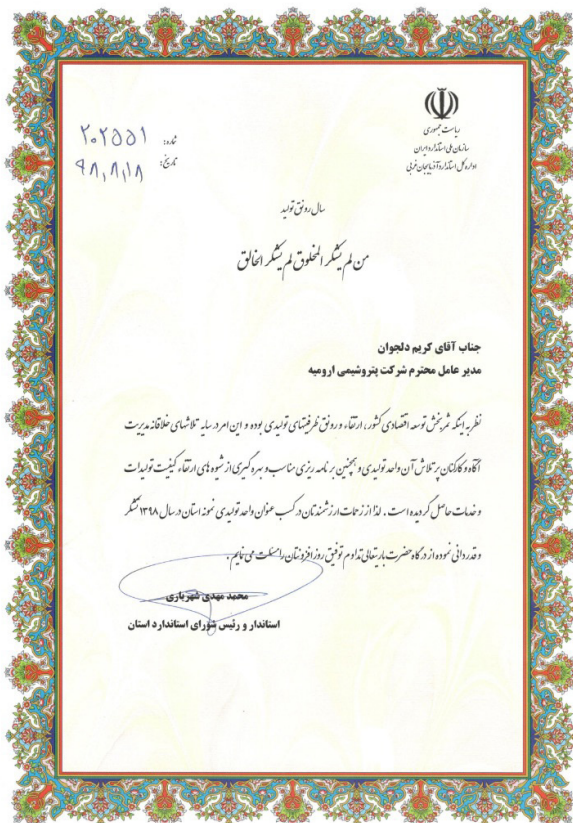 ریاست جمهوری
سازمان ملی استاندارد ایران
اداره کل استاندارد آذربایجان غربی
شماره: ۲۰۲۵۵۱
تاریخ: ۹۸,۸,۱۸
سال رونق تولید
من لم یشکر المخلوق لم یشکر الخالق
جناب آقای کریم دلجوان
مدیر عامل محترم شرکت پتروشیمی ارومیه
نظر به اینکه ثمربخش توسعه اقتصادی کشور، ارتقاء و رونق ظرفیتهای تولیدی بوده و این امر در سایه تلاشهای خلاقانه مدیریت
آگاه و کارکنان پر تلاش آن واحد تولیدی و همچنین برنامه ریزی مناسب و بهره گیری از شیوه های ارتقاء کیفیت تولیدات
و خدمات حاصل گردیده است. لذا از زحمات ارزشمندتان در کسب عنوان واحد تولیدی نمونه استان در سال ۱۳۹۸ تشکر
و قدردانی نموده از درگاه حضرت باریتعالی تداوم توفیق روز افزونتان را مسئلت می نمایم.
محمد مهدی شهریاری
استاندار و رئیس شورای استاندارد استان